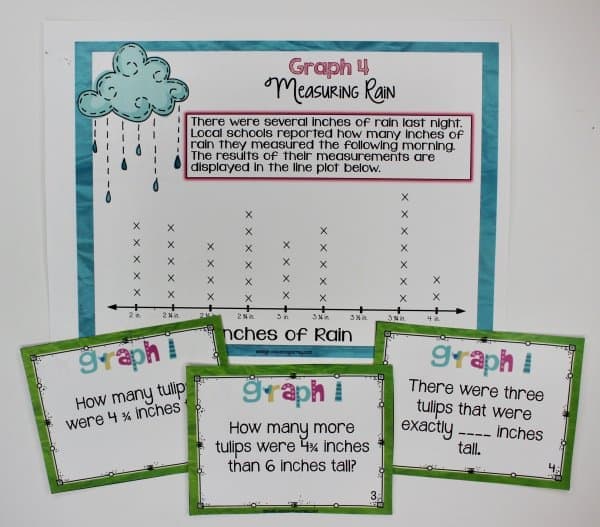 Graph 4
Measuring Rain
There were several inches of rain last night.
Local schools reported how many inches of
rain they measured the following morning.
The results of their measurements are
displayed in the line plot below.
2 in. 2 ¼ in. 2 3 in. 3 ¼ in. 4 in.
Inches of Rain
graph 1
How many tulip
were 4 ¾ inches
graph 1
How many more
tulips were 4¾ inches
than 6 inches tall?
3
graph 1
There were three
tulips that were
exactly ____ inches
tall.
4